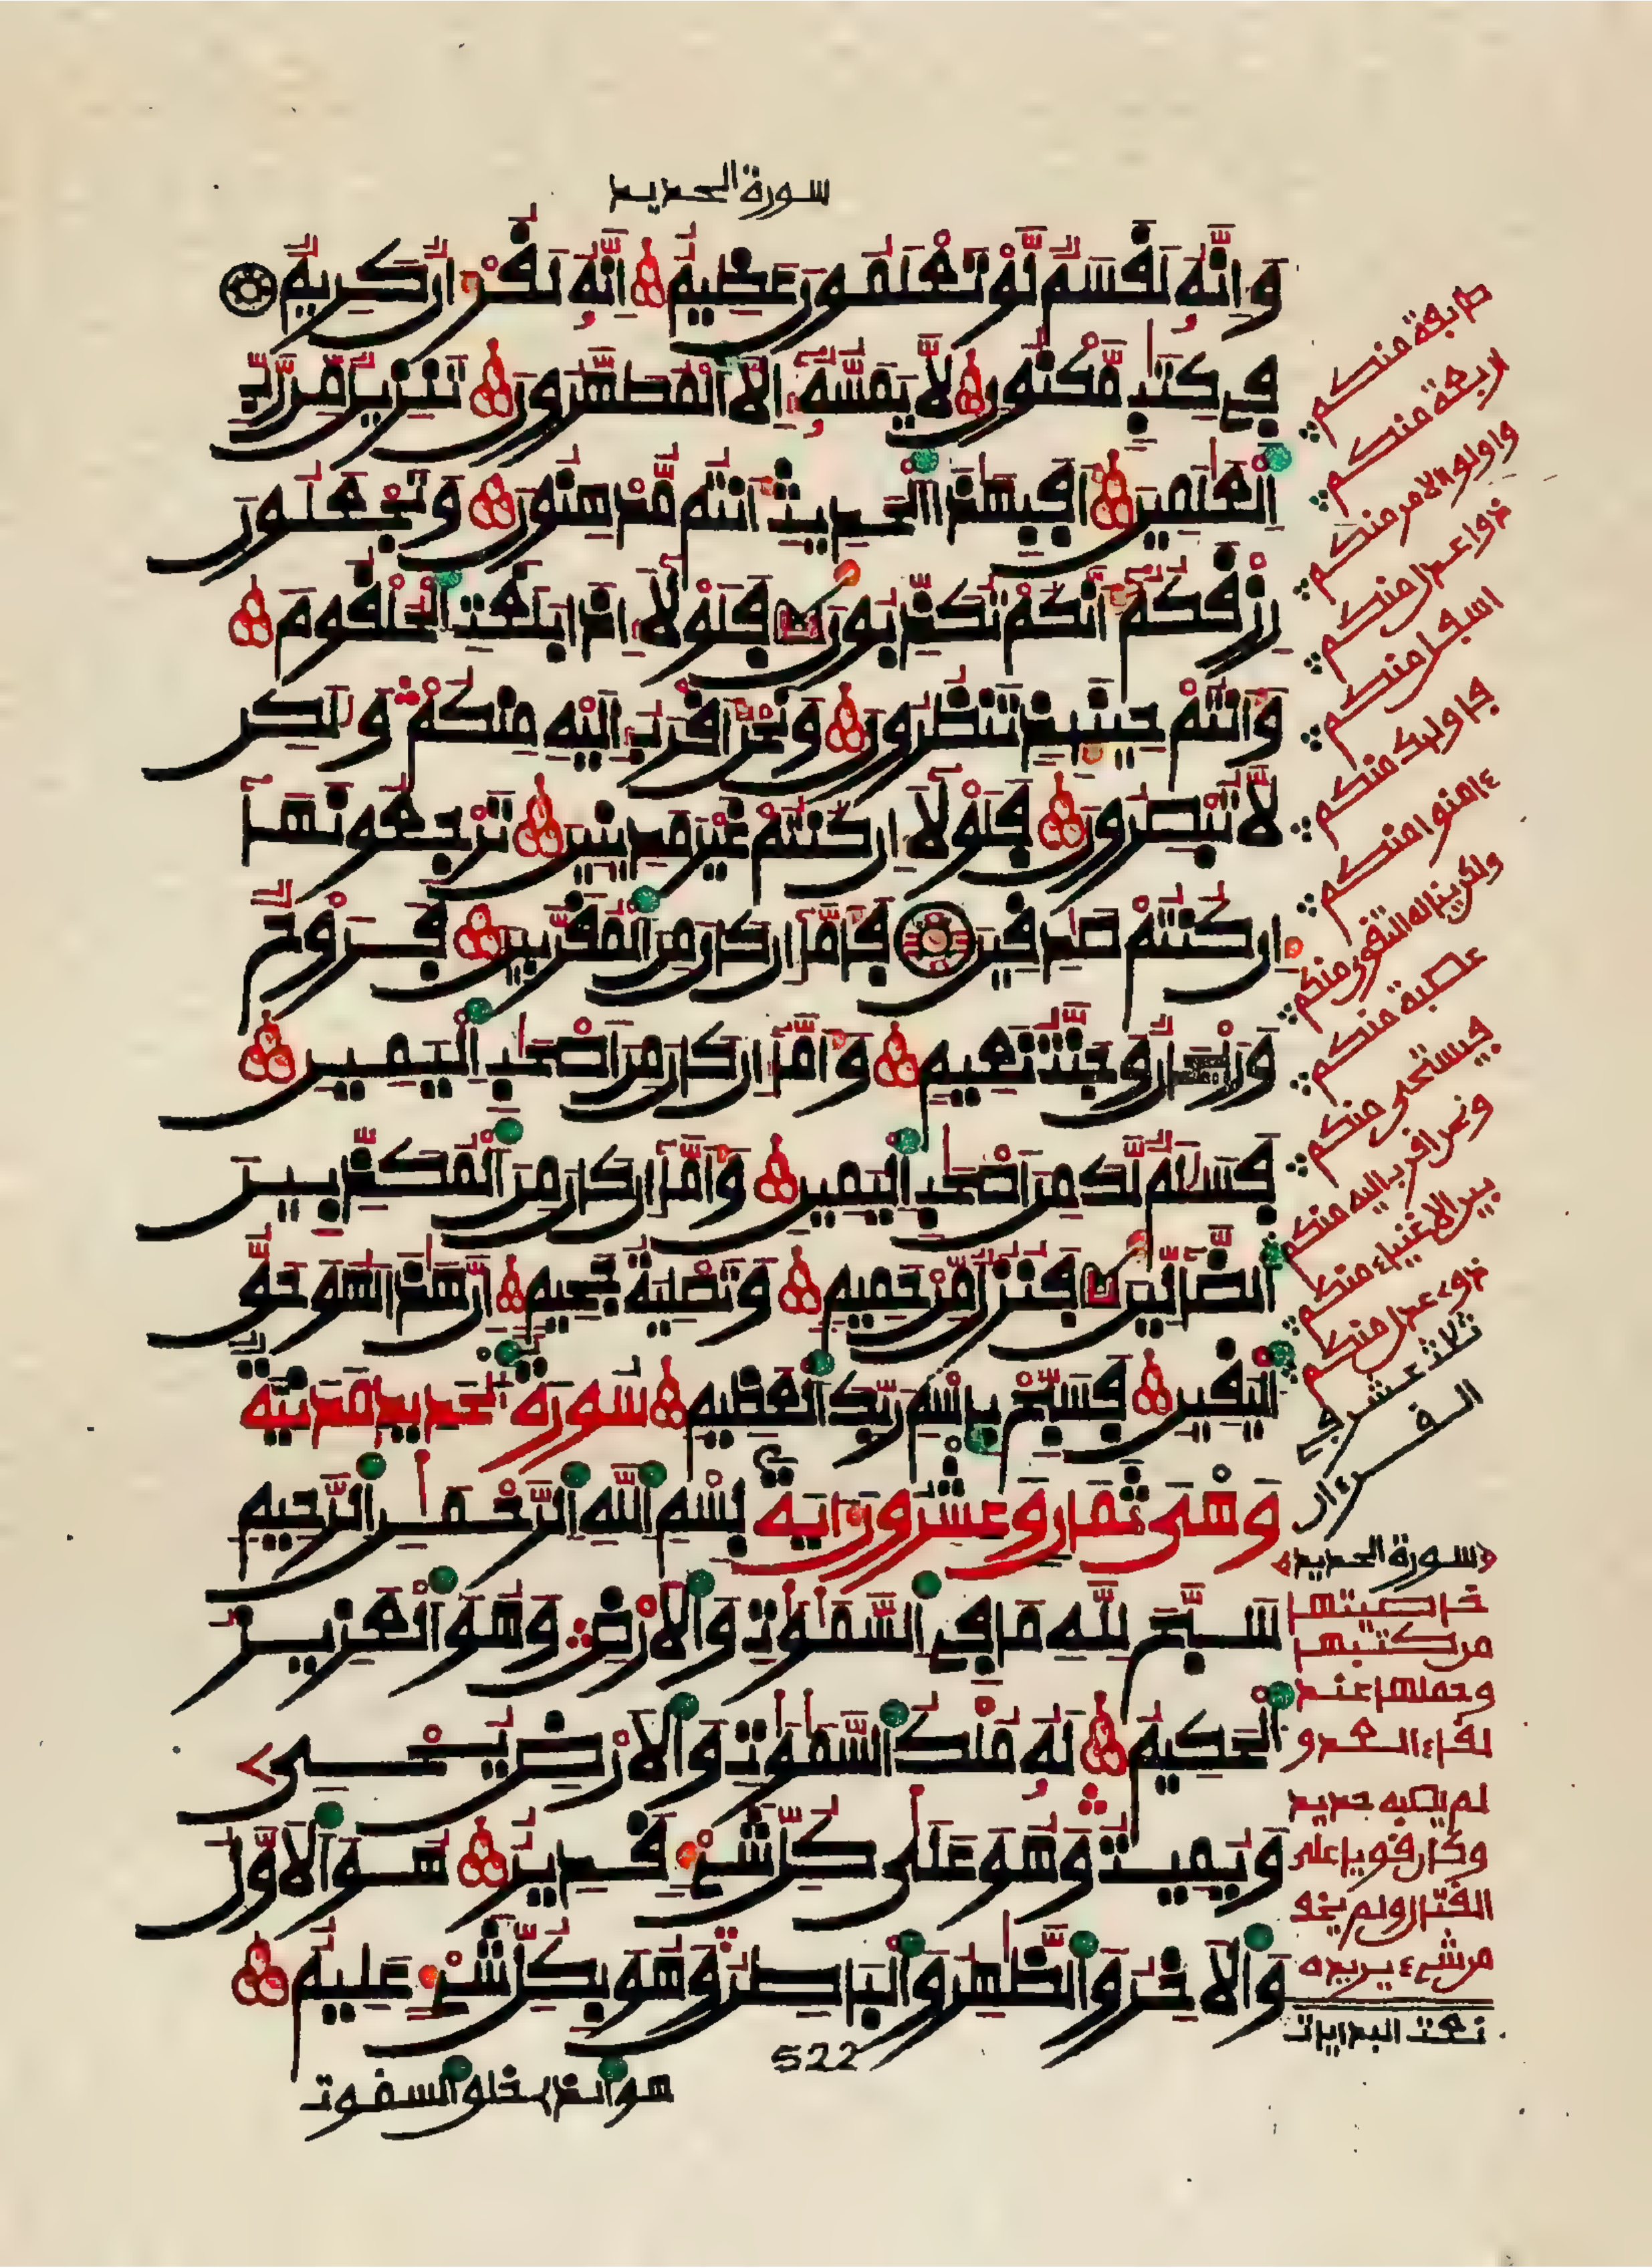 سورة الحديد
وَإِنَّهُ لَقَسَمٌ لَّوْ تَعْلَمُونَ عَظِيمٌ إِنَّهُ لَقُرْءَانٌ كَرِيمٌ
فِي كِتَٰبٍ مَّكْنُونٍ لَّا يَمَسُّهُ إِلَّا ٱلْمُطَهَّرُونَ تَنزِيلٌ مِّن رَّبِّ
ٱلْعَٰلَمِينَ أَفَبِهَٰذَا ٱلْحَدِيثِ أَنتُم مُّدْهِنُونَ وَتَجْعَلُونَ
رِزْقَكُمْ أَنَّكُمْ تُكَذِّبُونَ فَلَوْلَا إِذَا بَلَغَتِ ٱلْحُلْقُومَ
وَأَنتُمْ حِينَئِذٍ تَنظُرُونَ وَنَحْنُ أَقْرَبُ إِلَيْهِ مِنكُمْ وَلَٰكِن
لَّا تُبْصِرُونَ فَلَوْلَا إِن كُنتُمْ غَيْرَ مَدِينِينَ تَرْجِعُونَهَا
إِن كُنتُمْ صَٰدِقِينَ فَأَمَّا إِن كَانَ مِنَ ٱلْمُقَرَّبِينَ فَرَوْحٌ
وَرَيْحَانٌ وَجَنَّتُ نَعِيمٍ وَأَمَّا إِن كَانَ مِنْ أَصْحَٰبِ ٱلْيَمِينِ
فَسَلَٰمٌ لَّكَ مِنْ أَصْحَٰبِ ٱلْيَمِينِ وَأَمَّا إِن كَانَ مِنَ ٱلْمُكَذِّبِينَ
ٱلضَّالِّينَ فَنُزُلٌ مِّنْ حَمِيمٍ وَتَصْلِيَةُ جَحِيمٍ إِنَّ هَٰذَا لَهُوَ حَقُّ
ٱلْيَقِينِ فَسَبِّحْ بِاسْمِ رَبِّكَ ٱلْعَظِيمِ سورة الحديد مدنية
وهي ثمان وعشرون ءاية بِسْمِ ٱللَّهِ ٱلرَّحْمَٰنِ ٱلرَّحِيمِ
سَبَّحَ لِلَّهِ مَا فِي ٱلسَّمَٰوَٰتِ وَٱلْأَرْضِ وَهُوَ ٱلْعَزِيزُ
ٱلْحَكِيمُ لَهُ مُلْكُ ٱلسَّمَٰوَٰتِ وَٱلْأَرْضِ يُحْيِي
وَيُمِيتُ وَهُوَ عَلَىٰ كُلِّ شَيْءٍ قَدِيرٌ هُوَ ٱلْأَوَّلُ
وَٱلْءَاخِرُ وَٱلظَّٰهِرُ وَٱلْبَاطِنُ وَهُوَ بِكُلِّ شَيْءٍ عَلِيمٌ
522
هو الذي خلق السموت
طايفة منكم
اربعة منكم
واولو الامر منكم
ذوا عدل منكم
اسفل منكم
فاوليك منكم
ءامنوا منكم
ولكن يناله التقوى منكم
عصبة منكم
فيستحي منكم
ونحن اقرب اليه منكم
بين الاغنياء منكم
ذوي عدل منكم
ثلاث عشر في
القرءان
سورة الحديد
خاصيتها
من كتبها
وحملها عند
لقاء العدو
لم يصبه حديد
وكان قويا على
القتال ولم يخف
من شيء يريده
تمت البدايات